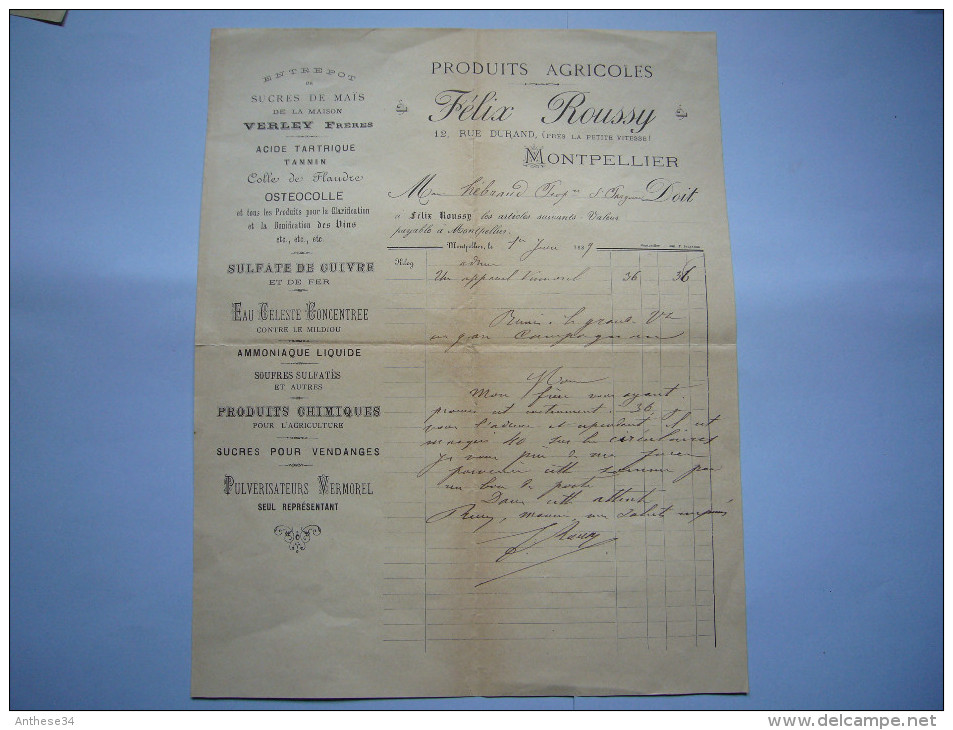 ENTREPOT
DE
SUCRES DE MAÏS
DE LA MAISON
VERLEY FRERES
ACIDE TARTRIQUE
TANNIN
Colle de Flandre
OSTEOCOLLE
et tous les Produits pour la Clarification
et la Bonification des Vins
etc., etc., etc.
SULFATE DE CUIVRE
ET DE FER
EAU CELESTE CONCENTREE
CONTRE LE MILDIOU
AMMONIAQUE LIQUIDE
SOUFRES SULFATÉS
ET AUTRES
PRODUITS CHIMIQUES
POUR L'AGRICULTURE
SUCRES POUR VENDANGES
PULVERISATEURS VERMOREL
SEUL REPRÉSENTANT
PRODUITS AGRICOLES
Félix Roussy
12, RUE DURAND, (PRÈS LA PETITE VITESSE)
MONTPELLIER
Doit
à Félix Roussy les articles suivants Valeur
payable à Montpellier.
Montpellier, le 1er Juin 1889
Un appareil Vermorel 36 36
Remis à la grande
Mon frère vous ayant
promis cet instrument 36
pour l'adresse et cependant il est
marqué 40 sur les circulaires
Je vous prie de me faire
parvenir cette somme par
un bon de poste
Dans cette attente
F. Roussy
Anthese34
http://www.delcampe.net